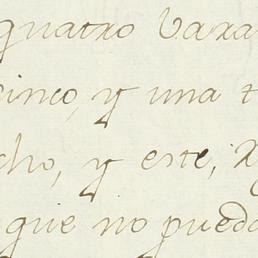 quatro Vara
cinco, y una t
cho, y este,
que no pueda